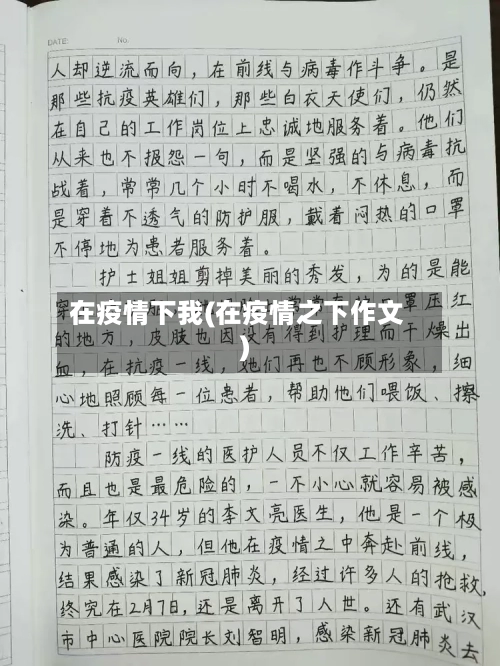 DATE No.
人却逆流而向，在前线与病毒作斗争。是
那些抗疫英雄们，那些白衣天使们，仍然
在自己的工作岗位上忠诚地服务着。他们
从来也不报怨一句，而是坚强的与病毒抗
战着，常常几个小时不喝水，不休息，而
是穿着不透气的防护服，戴着闷热的口罩
不停地为患者服务着。
护士姐姐剪掉美丽的秀发，为的是能
在疫情下我(在疫情之下作文
)
穿 口罩压红
的地方，皮肤也因没有得到护理而干燥出
血，在抗疫一线，她们再也不顾形象，细
心地照顾每一位患者，帮助他们喂饭、擦
洗、打针……
防疫一线的医护人员不仅工作辛苦，
而且也是最危险的，一不小心就容易被感
染。年仅34岁的李文亮医生，他是一个极
为普通的人，但他在疫情之中奔赴前线，
结果感染了新冠肺炎，经过许多人的抢救，
终究在2月7日，还是离开了人世。还有武汉
市中心医院院长刘智明，感染新冠肺炎去